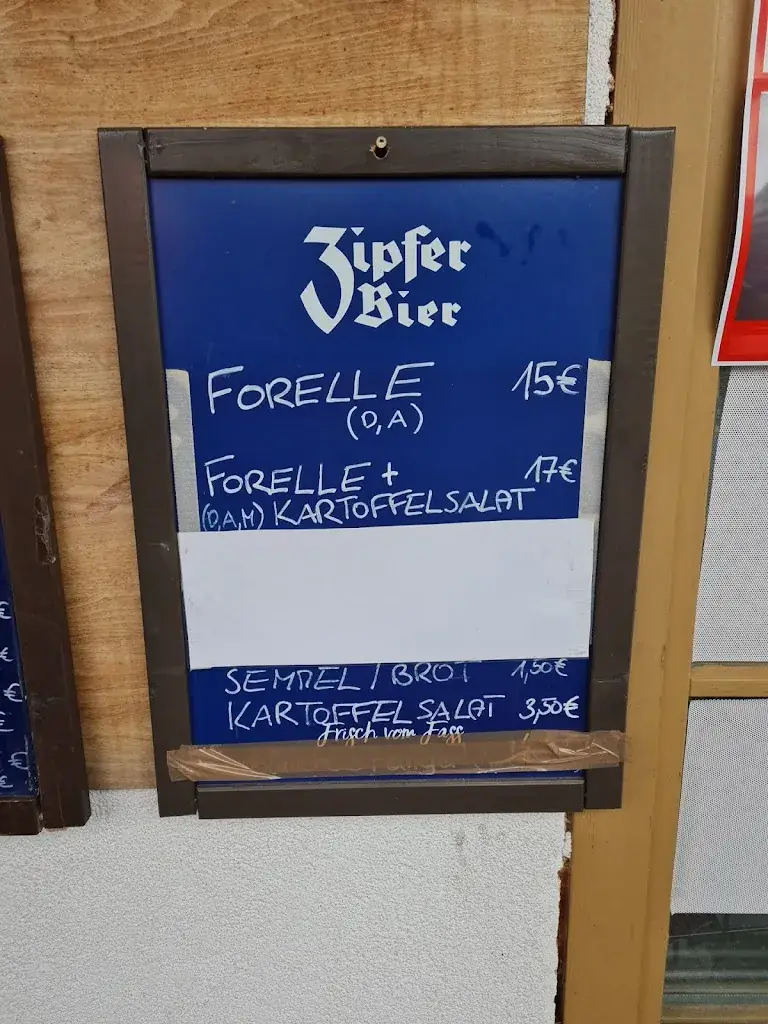 Zipfer
Bier
FORELLE 15€
(D, A)
FORELLE + 17€
(D,A,M) KARTOFFELSALAT
SEMMEL / BROT 1,50€
KARTOFFELSALAT 3,50€
Frisch vom Fass
€
€
€
€
€
€